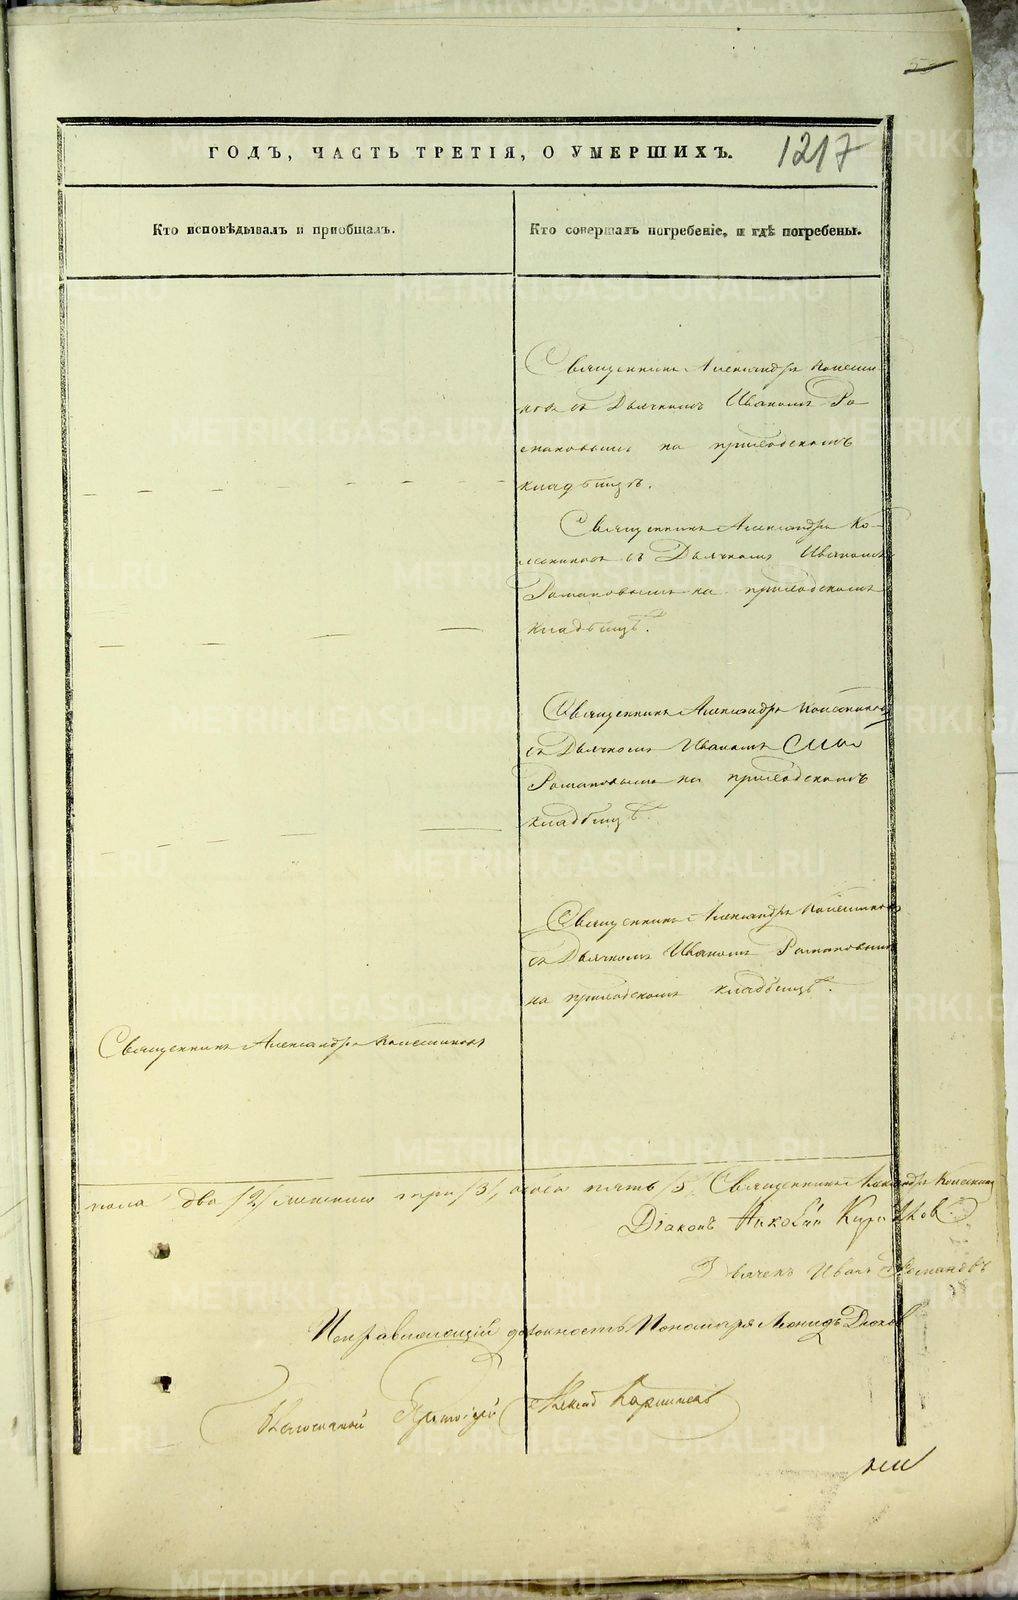 ГОДЪ, ЧАСТЬ ТРЕТІЯ, О УМЕРШИХЪ.
1217
Кто исповѣдывалъ и пріобщалъ.
Кто совершалъ погребеніе, и гдѣ погребены.
Священникъ Александръ
съ Дьячкомъ Иваномъ Ро-
мановымъ на приходскомъ
кладбищѣ.
Священникъ Александръ Ко-
съ Дьячкомъ Иваномъ
Романовымъ на приходскомъ
кладбищѣ.
Священникъ Александръ
съ Дьячкомъ Иваномъ
Романовымъ на приходскомъ
кладбищѣ.
Священникъ Александръ
съ Дьячкомъ Иваномъ Романовымъ
на приходскомъ кладбищѣ.
Священникъ Александръ
пола два /2/ женскаго три /3/, обоего пять /5/. Священникъ Александръ
Діаконъ Николай
Дьячекъ Иванъ Романовъ
Исправляющій должность Пономаря Леонидъ
Благочинный
METRIKI.GASO-URAL.RU